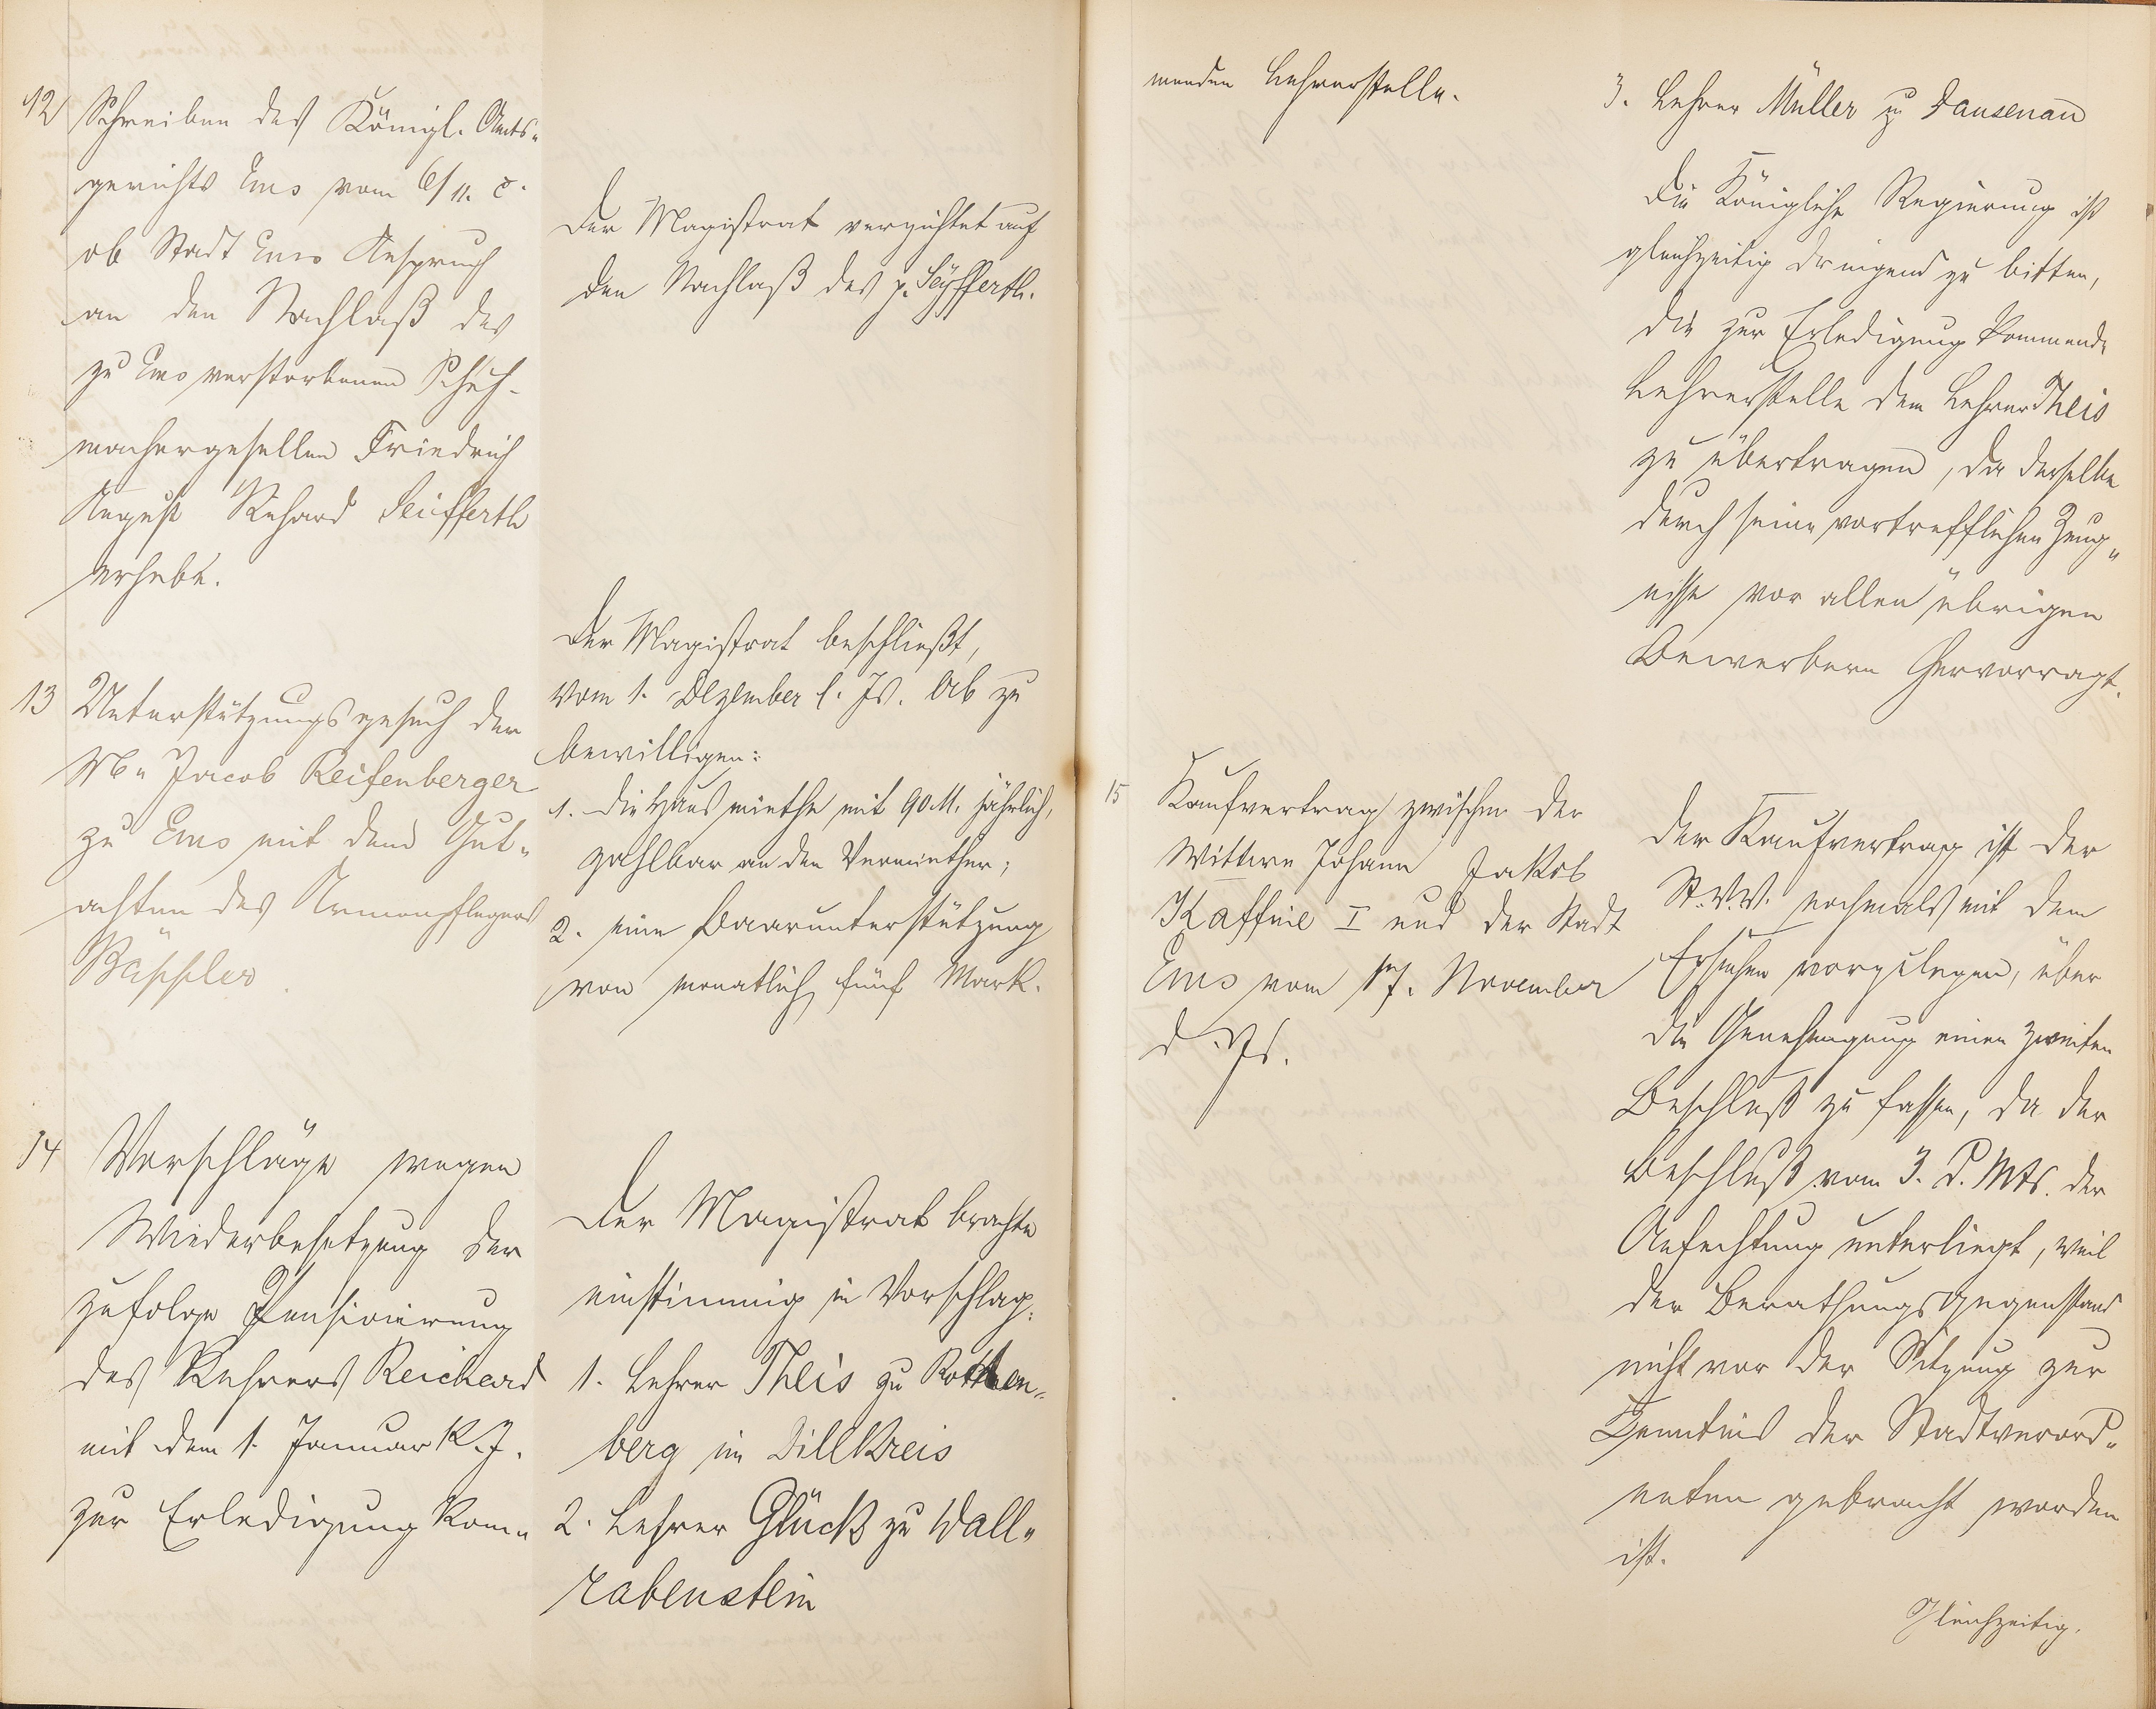 12
Schreiben des Königl. Amts-
gerichts Ems vom 6/11. c.
ob Stadt Ems Anspruch
an den Nachlaß des
zu Ems verstorbenen Schuh-
machergesellen Friedrich
August Richard Seifferth
erhebe.
Der Magistrat verzichtet auf
den Nachlaß des p. Seyfferth.
13
Unterstützungsgesuch der
Jacob Reifenberger
zu Ems mit dem Gut-
achten des Armenpflegers
Bäppler.
Der Magistrat beschließt,
vom 1. Dezember l. Js. ab zu
bewilligen:
1. die Hausmiethe mit 90 M. jährlich,
zahlbar an den Vermiether;
2. eine Baarunterstützung
von monatlich fünf Mark.
14
Vorschläge wegen
Wiederbesetzung der
zufolge Pensionierung
des Lehrers Reichard
mit dem 1. Januar k. J.
zur Erledigung kom-
Der Magistrat brachte
einstimmig in Vorschlag:
1. Lehrer Theis zu Rotten-
berg im Dillkreis
2. Lehrer Glück zu Wall-
rabenstein
menden Lehrerstelle.
3. Lehrer Müller zu Dausenau
Die Königliche Regierung ist
gleichzeitig dringend zu bitten,
die zur Erledigung kommende
Lehrerstelle dem Lehrer Theis
zu übertragen, da derselbe
durch seine vortrefflichen Zeug-
nisse vor allen übrigen
Bewerbern hervorragt.
15
Kaufvertrag zwischen der
Wittwe Johann Jakob
Kaffine I und der Stadt
Ems vom 17. November
d. Js.
Der Kaufvertrag ist der
St. V. V. nochmals mit dem
Ersuchen vorzulegen, über
die Genehmigung einen zweiten
Beschluß zu fassen, da der
Beschluß vom 3. d. Mts. der
Anfechtung unterliegt, weil
der Berathungsgegenstand
nicht vor der Sitzung zur
Kenntnis der Stadtverord-
neten gebracht worden
ist.
Gleichzeitig.